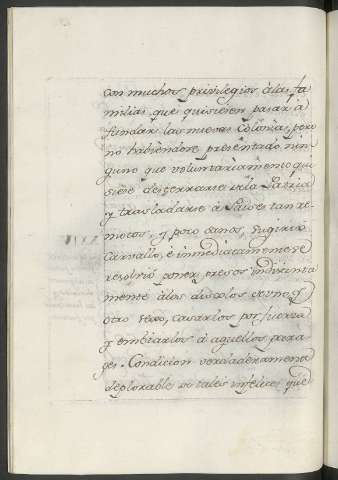 con muchos privilegios à las fa
milias, que quisiesen pasar à
fundar las nuevas Colonia; pero
no habiendose presentado nin
guno que voluntariamente qui
siese desterrarse de la Patria
y trasladarse à Paises tan re
motos, y poco sanos, sugirió
Carvallo, è immediatamente se
resolvió poner presos indistinta
mente à los discolos de uno, y
otro sexo, casarlos por fuerza
y embiarlos à aquellos para
ges. Condicion verdaderamente
deplorable de tales infelices que